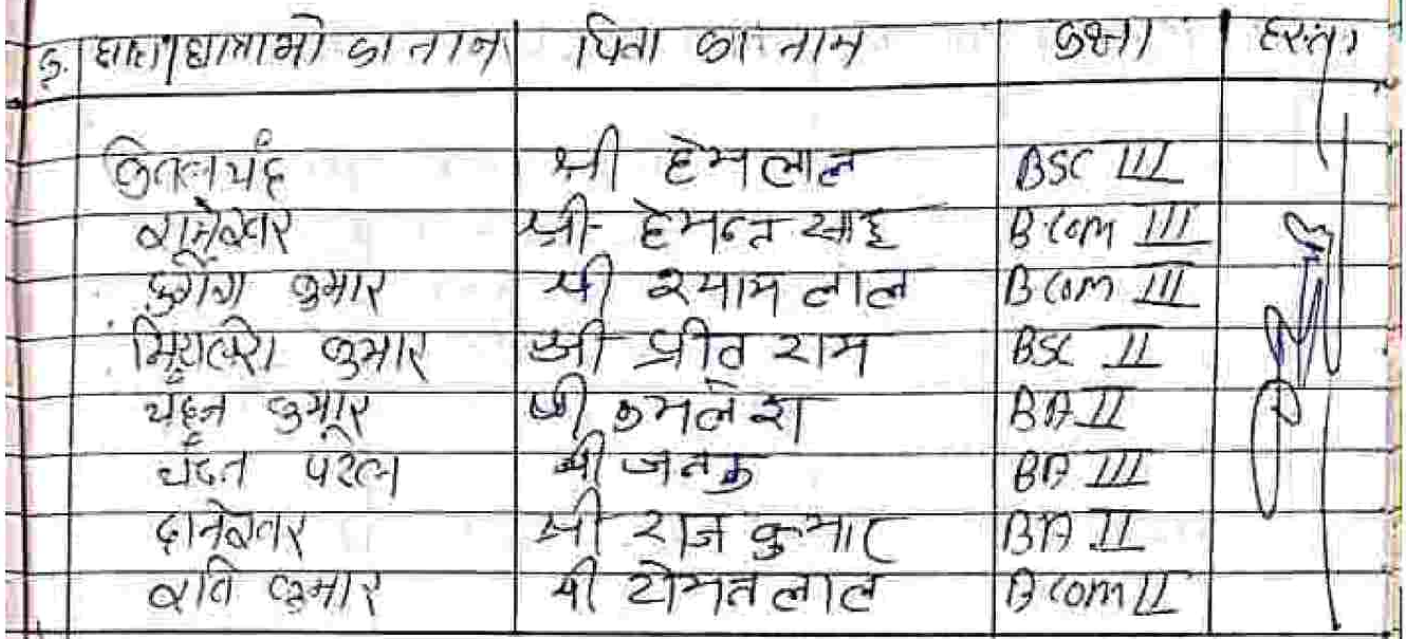 क्र. छात्र/छात्राओं का नाम पिता का नाम कक्षा हस्ता
श्री हेमलाल BSC III
श्री हेमन्त साहू BCom III
कुमार श्री श्यामलाल BCom III
कुमार श्री प्रीत राम BSC II
चंदन कुमार श्री कमलेश BA II
चंदन पटेल श्री जनक BA III
दानेश्वर श्री राज कुमार BA II
रवि कुमार श्री टोमनलाल BCom II